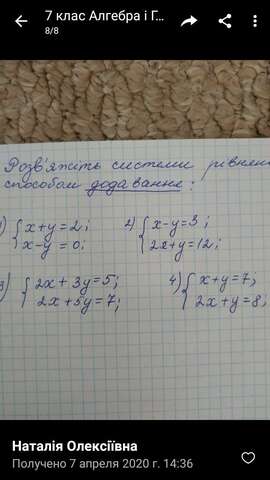 7 клас Алгебра і Г...
8/8
Розв'яжіть системи рівнень
способом додавання:
1) { x+y=2; 2) { x-y=3;
x-y=0; 2x+y=12;
3) { 2x+3y=5; 4) { x+y=7;
2x+5y=7; 2x+y=8;
Наталія Олексіївна
Получено 7 апреля 2020 г. 14:36